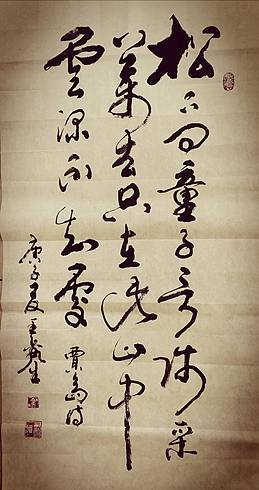 松下問童子言師采
藥去只在此山中
雲深不知處 賈島詩
庚子夏王